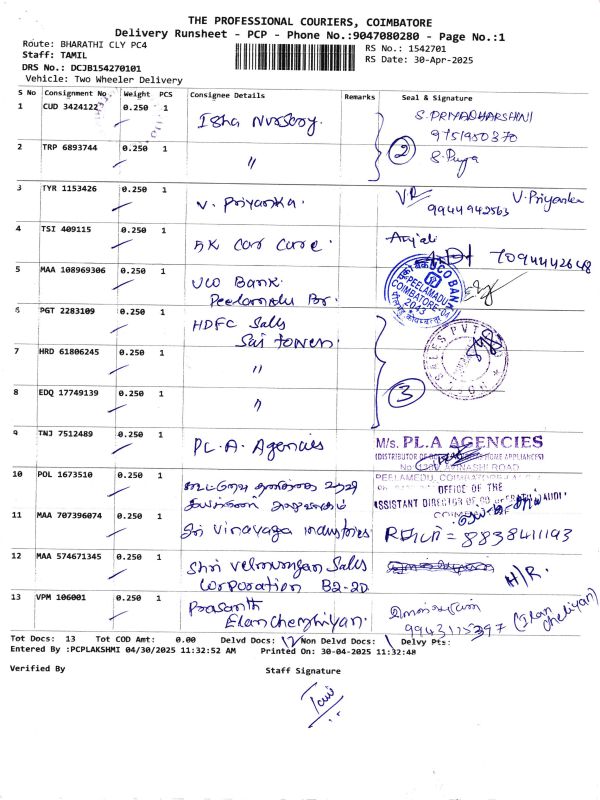 THE PROFESSIONAL COURIERS, COIMBATORE
Delivery Runsheet - PCP - Phone No.:9047080280 - Page No.:1
Route: BHARATHI CLY PC4
RS No.: 1542701
Staff: TAMIL
RS Date: 30-Apr-2025
DRS No.: DCJB154270101
Vehicle: Two Wheeler Delivery
S No Consignment No Weight PCS Consignee Details Remarks Seal & Signature
1 CUD 3424122 0.250 1 Isha Nursery. S. PRIYADHARSHINI
9751950370
2 TRP 6893744 0.250 1 〃 2 S. Priya
3 TYR 1153426 0.250 1 V. Priyanka. V.Priyanka
9944942563
4 TSI 409115 0.250 1 AK Car Care. Anjali
7094442648
5 MAA 108969306 0.250 1 UCO Bank.
Peelamedu Br.
UCO BANK
PEELAMEDU
COIMBATORE-04
2033
6 PGT 2283109 0.250 1 HDFC Sales
Sai towers.
SALES PVT
7 HRD 61806245 0.250 1 〃
8 EDQ 17749139 0.250 1 〃 3
9 TNJ 7512489 0.250 1 P.L.A. Agencies
M/s. PL.A AGENCIES
(DISTRIBUTOR OF HOME APPLIANCES)
AVINASHI ROAD
PEELAMEDU, COIMBATORE
10 POL 1673510 0.250 1
OFFICE OF THE
ASSISTANT DIRECTOR OF
11 MAA 707396074 0.250 1 Sri Vinayaga industries = 8838411193
12 MAA 574671345 0.250 1 Shri Velmurugan Sales
Corporation B2-2D H/R.
13 VPM 106001 0.250 1 Prasanth
Elanchezhiyan. 99431 (Ilan
cheliyan)
Tot Docs: 13 Tot COD Amt: 0.00 Delvd Docs: 12 Non Delvd Docs: 1 Delvy Pts:
Entered By :PCPLAKSHMI 04/30/2025 11:32:52 AM Printed On: 30-04-2025 11:32:48
Verified By Staff Signature